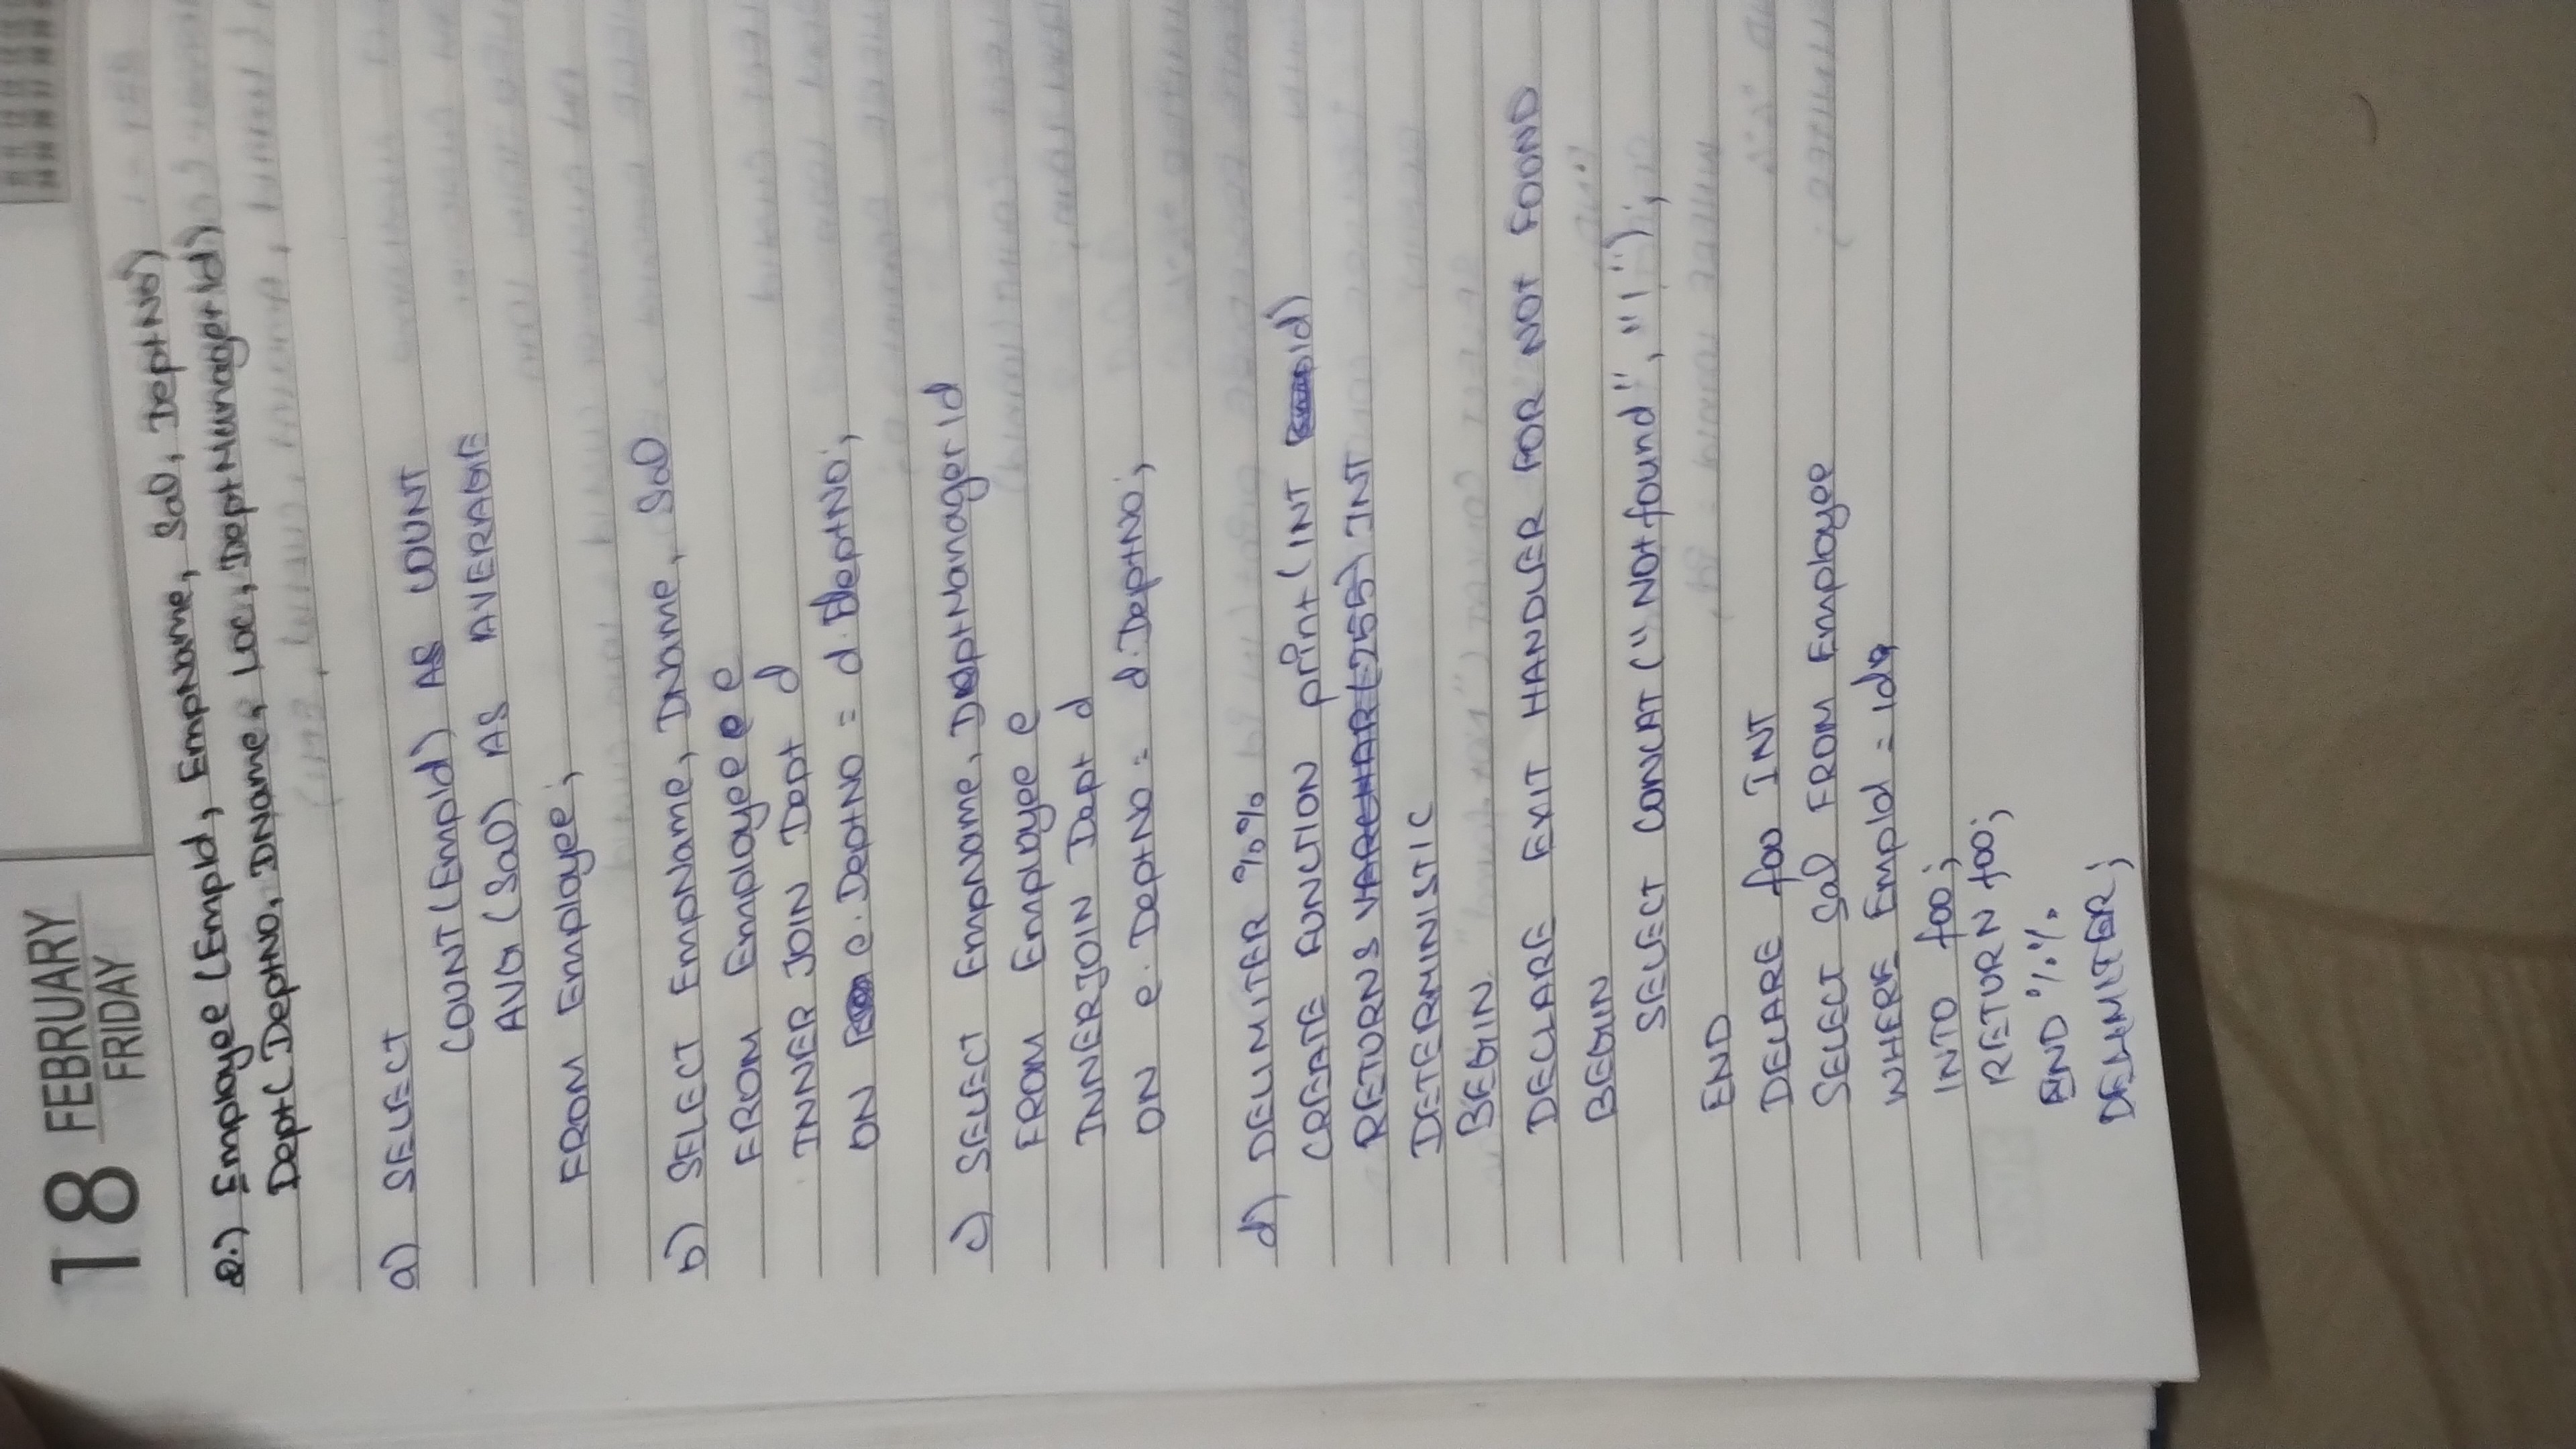 18 FEBRUARY
FRIDAY
Q.) Employee (EmpId, EmpName, Sal, DeptNo)
Dept( DeptNo, DName, Loc, DeptManagerId)
a) SELECT
COUNT(EmpId) AS COUNT
AVG (Sal) AS AVERAGE
FROM Employee;
b) SELECT EmpName, DName, Sal
FROM Employee e
INNER JOIN Dept d
ON e.DeptNo = d.DeptNo;
c) SELECT EmpName, DeptManagerId
FROM Employee e
INNER JOIN Dept d
ON e.DeptNo = d.DeptNo;
d) DELIMITER %%
CREATE FUNCTION print(INT id)
RETURNS VARCHAR(255) INT
DETERMINISTIC
BEGIN
DECLARE EXIT HANDLER FOR NOT FOUND
BEGIN
SELECT CONCAT ("Not found", "!");
END
DELARE foo INT
SELECT Sal FROM Employee
WHERE EmpId = id
INTO foo;
RETURN foo;
END %%
DELIMITER;